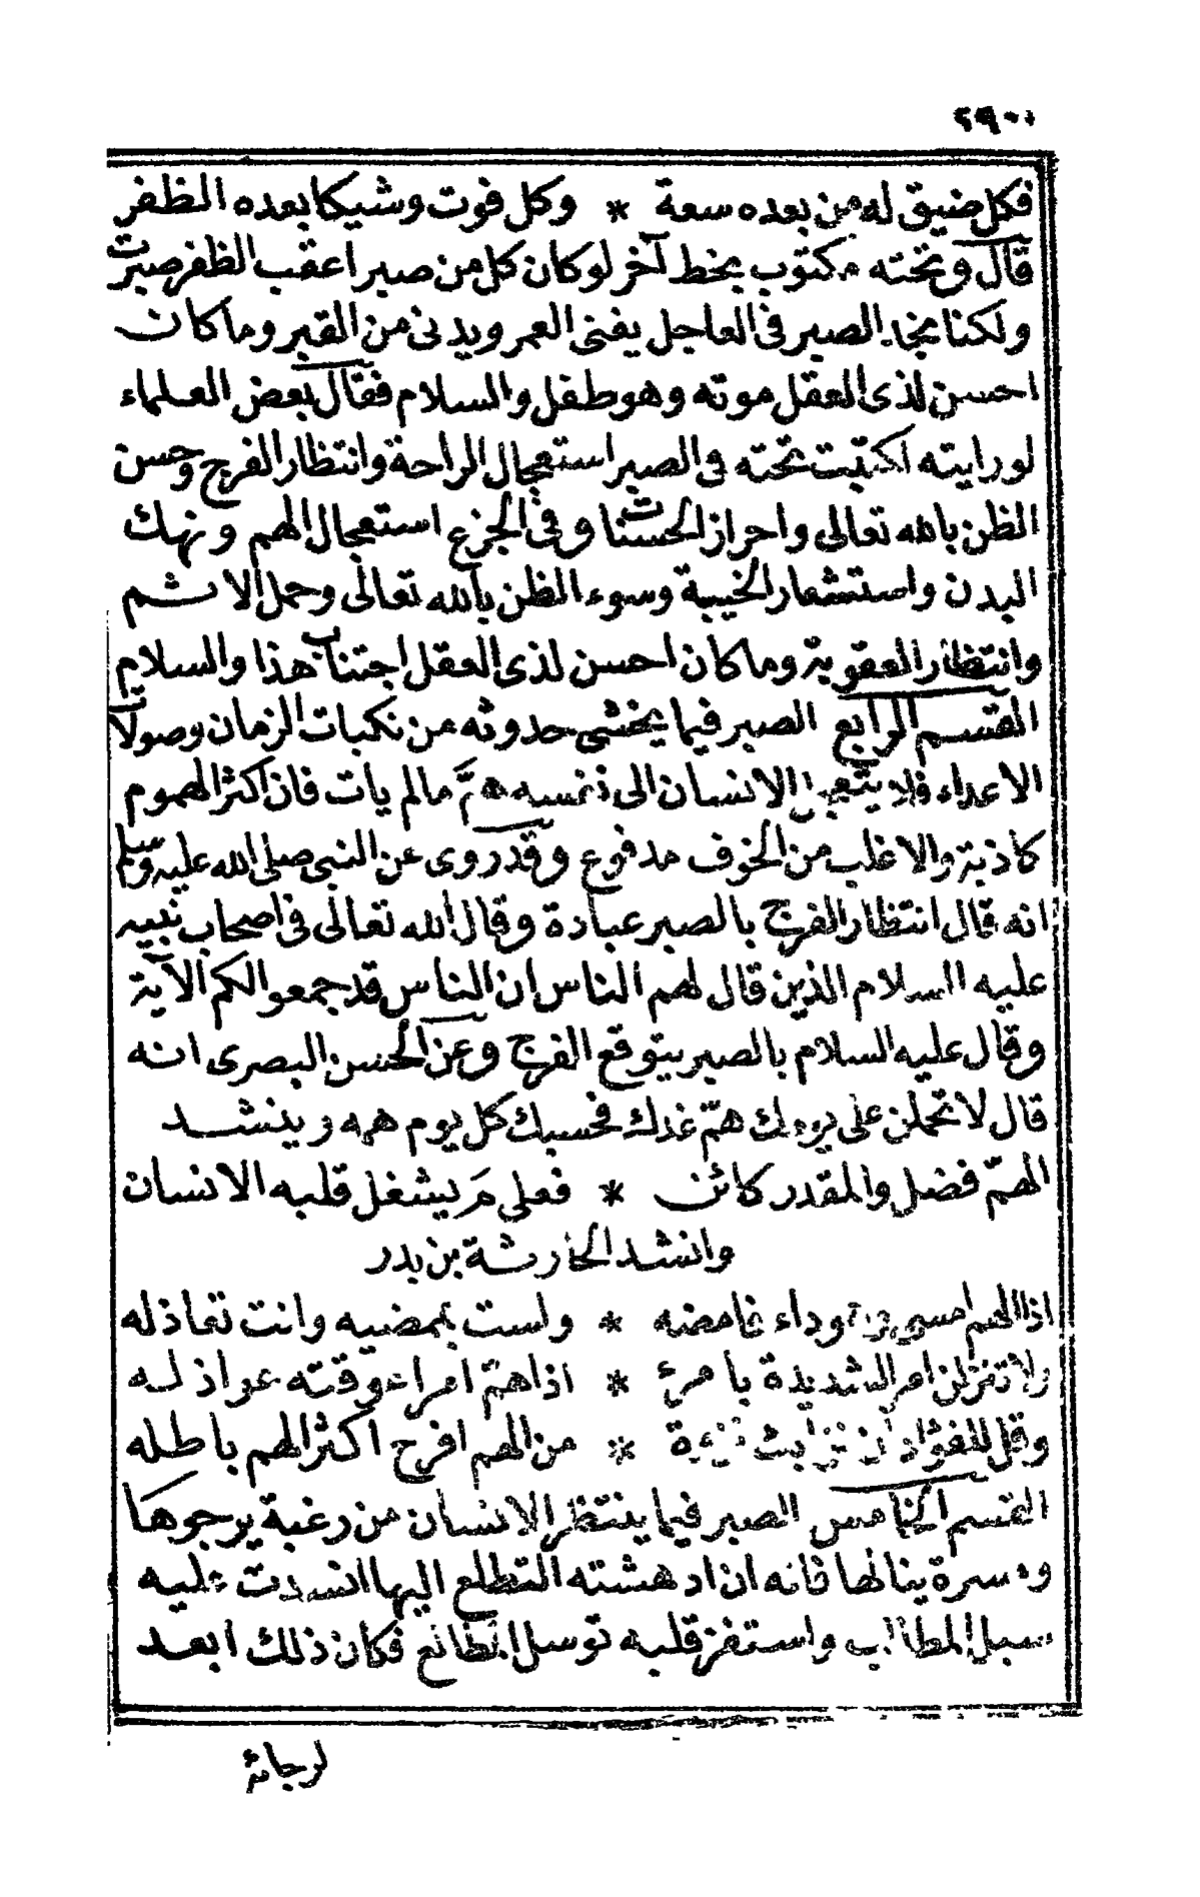 ٢٩٠
فكل ضيق له من بعده سعة * وكل فوت وشيكا بعده الظفر
قال وتحته مكتوب بخط آخر لو كان كل من صبر اعقب الظفر صبرت
ولكنا نجد الصبر فى العاجل يفنى العمر ويدنى من القبر وما كان
احسن لذى العقل موته وهو طفل والسلام فقال بعض العلماء
لو رايته لكتبت تحته فى الصبر استعجال الراحة وانتظار الفرج وحسن
الظن بالله تعالى واحراز الحسنات وفى الجزع استعجال الهم ونهك
البدن واستشعار الخيبة وسوء الظن بالله تعالى وحمل الاثم
وانتظار العقوبة وما كان احسن لذى العقل اجتناب هذا والسلام
القسم الرابع الصبر فيما يخشى حدوثه من نكبات الزمان وصولات
الاعداء فلا يتعجل الانسان الى نفسه همّ مالم يات فان اكثر الهموم
كاذبة والاغلب من الخوف مدفوع وقد روى عن النبى صلى الله عليه وسلم
انه قال انتظار الفرج بالصبر عبادة وقال الله تعالى فى اصحاب نبيه
عليه السلام الذين قال لهم الناس ان الناس قد جمعوا لكم الآية
وقال عليه السلام بالصبر يتوقع الفرج وعن الحسن البصرى انه
قال لا تحملن على يومك همّ غدك فحسبك كل يوم همه وينشد
الهمّ فضل والمقدر كائن * فعلى مَ يشغل قلبه الانسان
وانشد الحارثة بن بدر
اذا الهم امسى وهو داء غامضه * ولست بمضيه وانت تعاذله
ولا تنزلن امر الشديدة بامرئ * اذا همّ امرا عوقته عواذله
وقل للفؤاد ان نزا بك نزوة * من الهم افرج اكثر الهم باطله
القسم الخامس الصبر فيما ينتظر الانسان من رغبة يرجوها
ومسرة ينالها فانه ان ادهشته التطلع اليها انسدت عليه
سبل المطالب واستفز قلبه توسل المطامع فكان ذلك ابعد
لرجائه